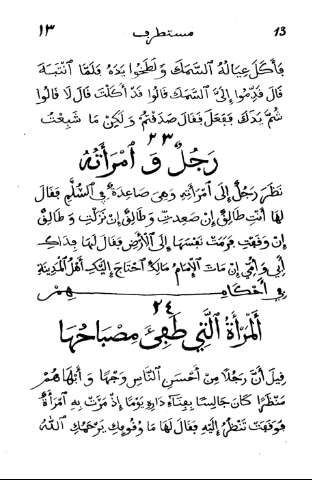 13 مستطرف ١٣
فَأَكَلَ عِيَالُهُ السَّمَكَ وَلَطَخُوا يَدَهُ فَلَمَّا انْتَبَهَ
قَالَ قَدِّمُوا إِلَيَّ السَّمَكَ قَالُوا قَدْ أَكَلْتَ قَالَ لَا قَالُوا
شُمَّ يَدَكَ فَفَعَلَ فَقَالَ صَدَقْتُمْ وَلٰكِنْ مَا شَبِعْتُ
٢٣
رَجُلٌ وَ امْرَأَتُهُ
نَظَرَ رَجُلٌ إِلَى امْرَأَتِهِ وَهِيَ صَاعِدَةٌ فِي السُّلَّمِ فَقَالَ
لَهَا أَنْتِ طَالِقٌ إِنْ صَعِدتِ وَ طَالِقٌ إِنْ نَزَلْتِ وَ طَالِقٌ
إِنْ وَقَفْتِ فَرَمَتْ نَفْسَهَا إِلَى الْأَرْضِ فَقَالَ لَهَا فِدَاكِ
أَبِي وَ أُمِّي إِنْ مَاتَ الْإِمَامُ مَالِكٌ احْتَاجَ إِلَيْكِ أَهْلُ الْمَدِينَةِ
فِي أَحْكَامِـهِـمْ
٢٤
اَلْمَرْأَةُ الَّتِي طَفِئَ مِصْبَاحُهَا
قِيلَ أَنَّ رَجُلًا مِنْ أَحْسَنِ النَّاسِ وَجْهًا وَ أَبْهَاهُمْ
مَنْظَرًا كَانَ جَالِسًا بِفِنَاءِ دَارِهِ يَوْمًا إِذْ مَرَّتْ بِهِ امْرَأَةٌ
فَوَقَفَتْ تَنْظُرُ إِلَيْهِ فَقَالَ لَهَا مَا وُقُوفُكِ يَرْحَمُكِ اللهُ